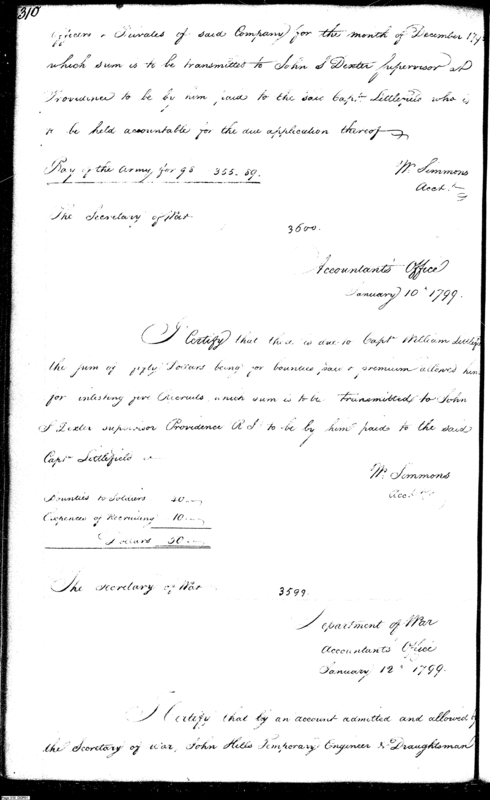 310
Officers & Privates of said Company for the month of December 179
which sum is to be transmitted to John S Dexter Supervisor at
Providence to be by him paid to the said Capt. Littlefield who is
to be held accountable for the due application thereof
Pay of the Army for 98 355.59.
Wm Simmons
Acct.
The Secretary of War
3600.
Accountant's Office
January 10th 1799.
I Certify that there is due to Capt William Littlefi
the sum of fifty Dollars being for bounties paid & premium allowed him
for inlisting five Recruits which sum is to be transmitted to John
S Dexter supervisor Providence R I to be by him paid to the said
Capt Littlefield
Wm Simmons
Acct
Bounties to Soldiers 40
Expences of Recruiting 10
Dollars 50
The Secretary of War
3599.
Department of War
Accountants Office
January 12th 1799.
I Certify that by an account admitted and allowed by
the Secretary of War, John Hills Temporary Engineer & Draughtsman